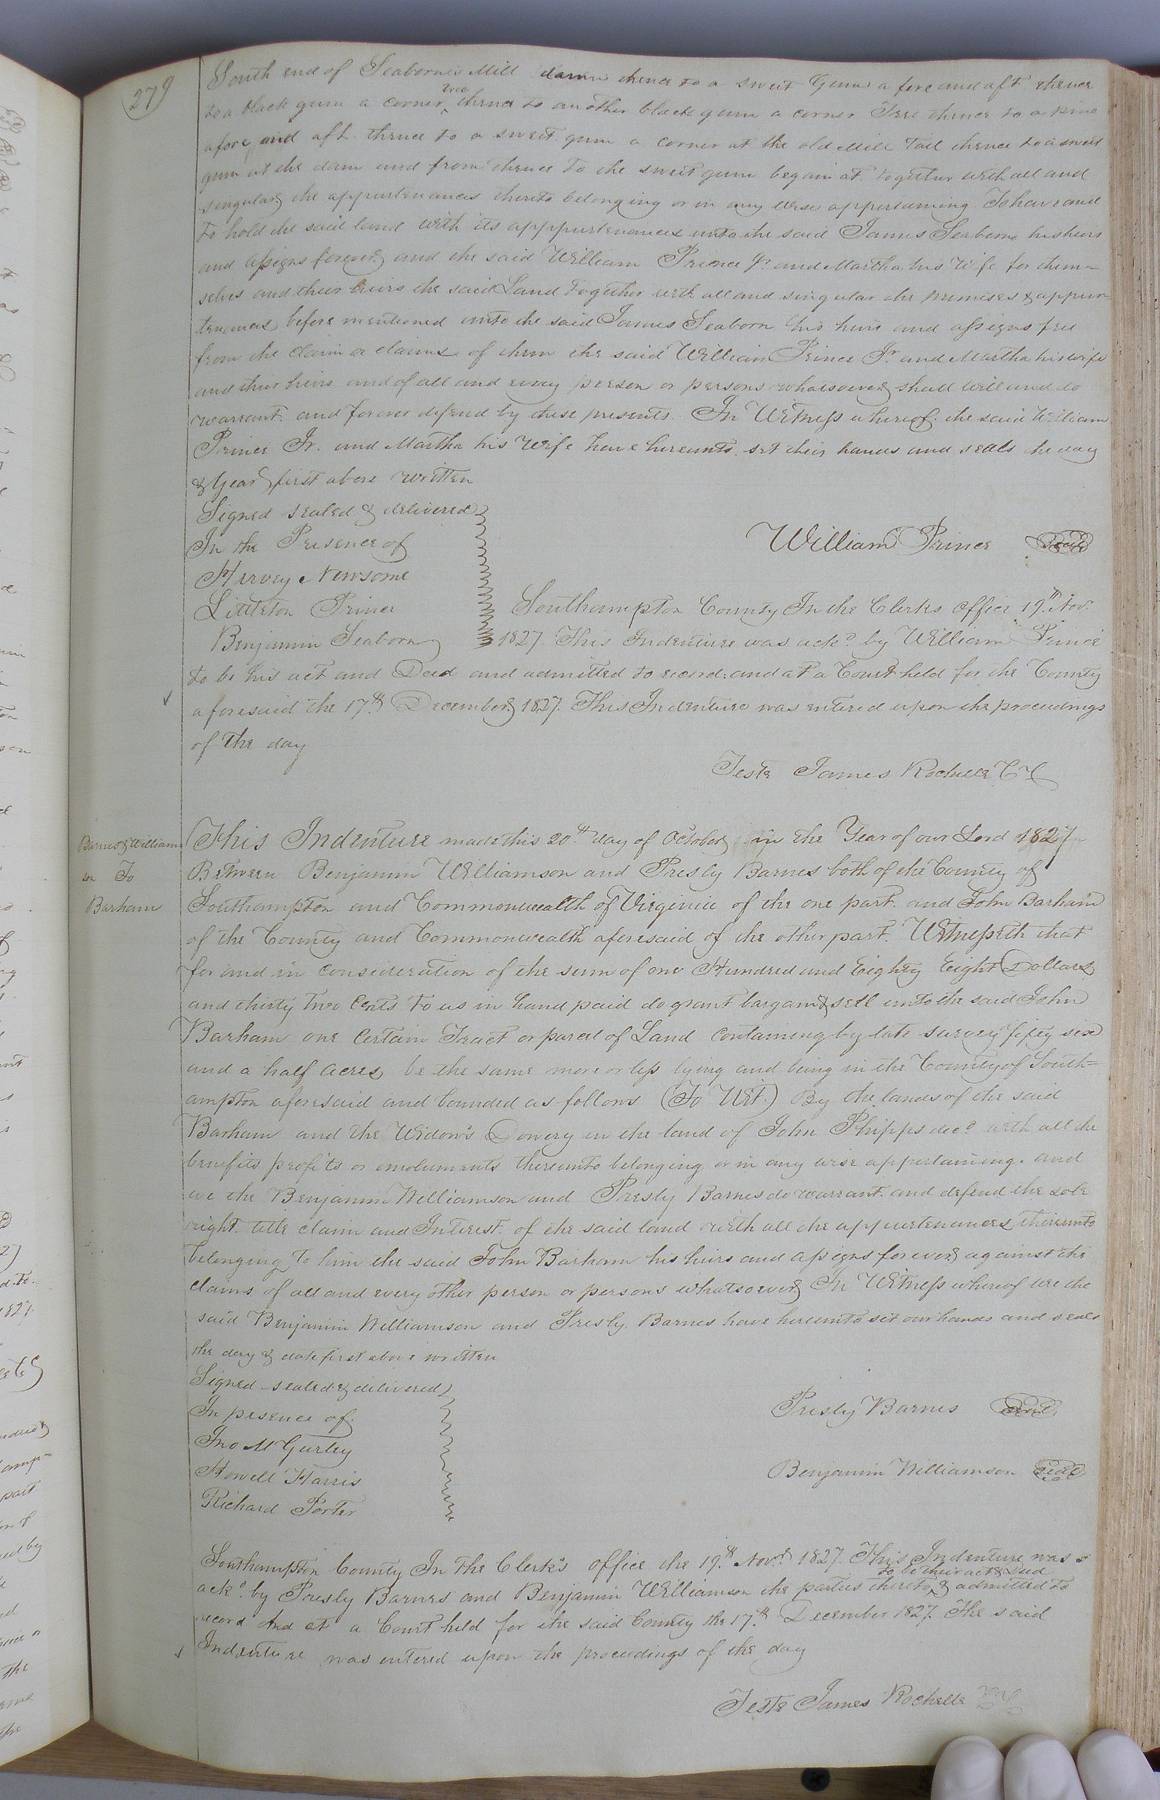 279
South end of Seaborn's Mill damn thence to a sweet Gum a fore and aft thence
to a black gum a corner tree thence to another black gum a corner Tree thence to a pine
afore and aft thence to a sweet gum a corner at the old Mill Tail thence to a sweet
gum at the dam and from thence to the sweet gum began at together with all and
singular the appurtenances thereto belonging or in any wise appertaining To have and
to hold the said land with its apppurtenances unto the said James Seaborn his heirs
and assigns forever and the said William Prince Jr and Martha his Wife for them-
selves and their heirs the said Land together with all and singular the premises & appur
tenances before mentioned unto the said James Seaborn his heirs and assigns free
from the Claim or claims of them the said William Prince Jr and Martha his wife
and their heirs and of all and every person or persons whatsoever shall will and do
warrant and forever defend by these presents In Witness whereof the said William
Prince Jr. and Martha his Wife have hereunto set their hands and seals the day
& Year first above written
Signed sealed & delivered
In the Presence of
William Prince Seal
Hervey Newsome
Littleton Prince
Benjamin Seaborn
Southampton County In the Clerks office 19th Nov.
1827. This Indenture was ackd by William Prince
to be his act and Deed and admitted to record and at a Court held for the County
aforesaid the 17th December 1827. This Indenture was entered upon the proceedings
of the day
Teste James Rochelle CC
Barnes & William
son To
Barham
This Indenture made this 20th day of October in the Year of our Lord 1827
Between Benjamin Williamson and Presly Barnes both of the County of
Southampton and Commonwealth of Virginia of the one part and John Barham
of the County and Commonwealth aforesaid of the other part. Witnesseth that
for and in consideration of the sum of one Hundred and Eighty Eight Dollars
and thirty two Cents to us in hand paid do grant bargain & sell unto the said John
Barham one Certain Tract or parcel of Land Containing by late survey fifty six
and a half acres be the same more or less lying and being in the County of South=
ampton aforesaid and bounded as follows (To Wit.) By the lands of the said
Barham and the Widow's Dowery in the land of John Phipps decd with all the
benefits profits or emoluments thereunto belonging or in any wise appertaining. and
we the Benjamin Williamson and Presly Barnes do warrant and defend the sole
right title claim and Interest of the said land with all the appurtenances thereunto
belonging to him the said John Barham his heirs and assigns forever against the
claims of all and every other person or persons whatsoever In Witness whereof we the
said Benjamin Williamson and Presly Barnes have hereunto set our hands and seals
the day & date first above written
Signed sealed & delivered
In presence of
Presly Barnes Seal
Jno M Gurley
Howell Harris
Benjamin Williamson Seal
Richard Porter
Southampton County In the Clerk's office the 19th Novr 1827. This Indenture was
to be their act & deed
ackd by Presly Barnes and Benjamin Williamson the parties thereto & admitted to
record And at a Court held for the said County the 17th December 1827. The said
Indenture was entered upon the proceedings of the day
Teste James Rochelle